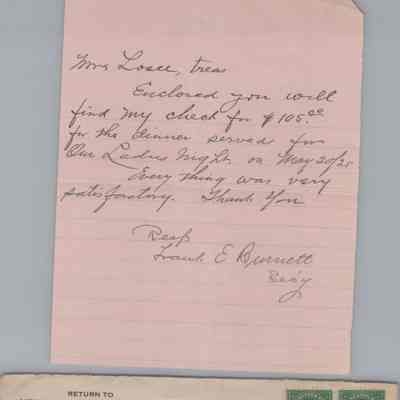 Mrs Losee, treas
Enclosed you will
find my check for $105.00
for the dinner served for
Our Ladies Night, on May 20/25
Every thing was very
satisfactory. Thank You
Resp
Frank E Burnett
Sec'y
RETURN TO